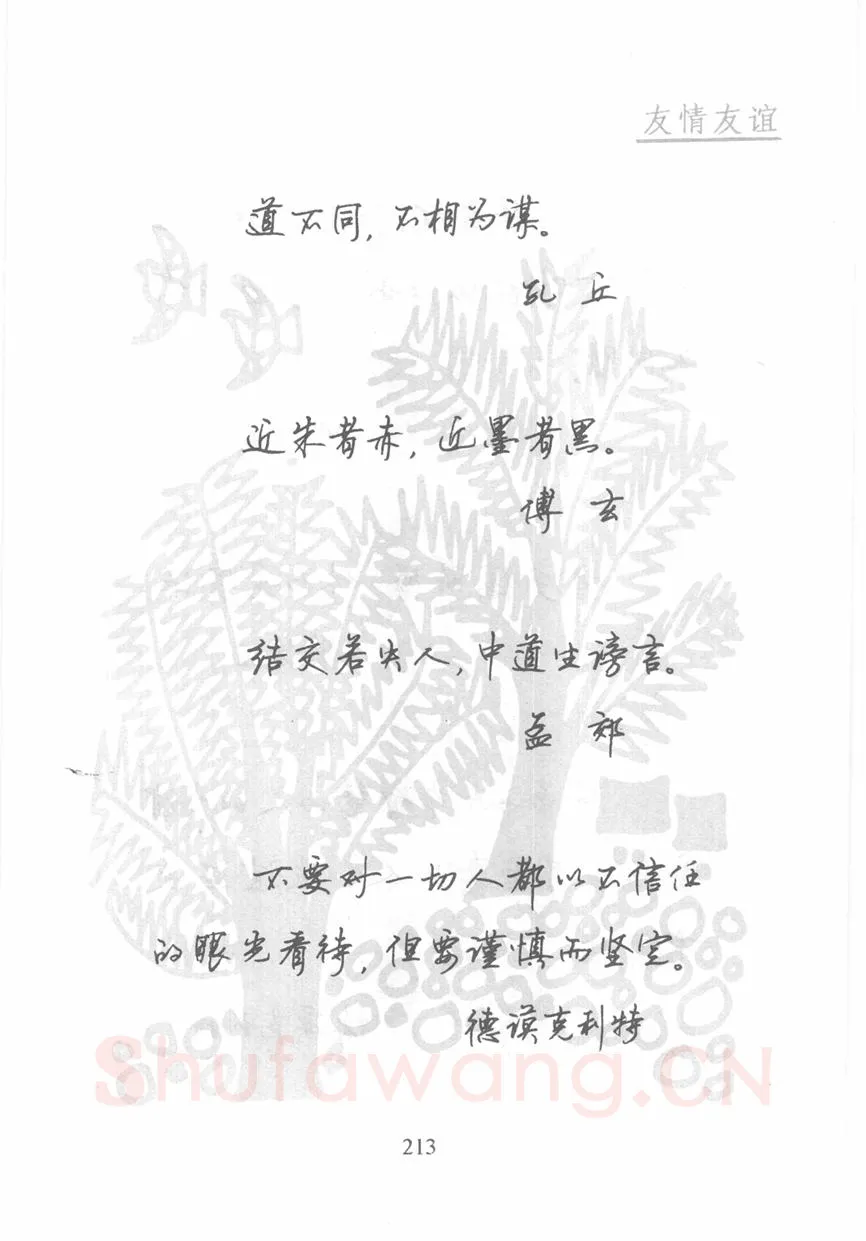 友情友谊
道不同，不相为谋。
孔 丘
近朱者赤，近墨者黑。
傅 玄
结交若失人，中道生谤言。
孟 郊
不要对一切人都以不信任
的眼光看待，但要谨慎而坚定。
德谟克利特
Shufawang.CN
213